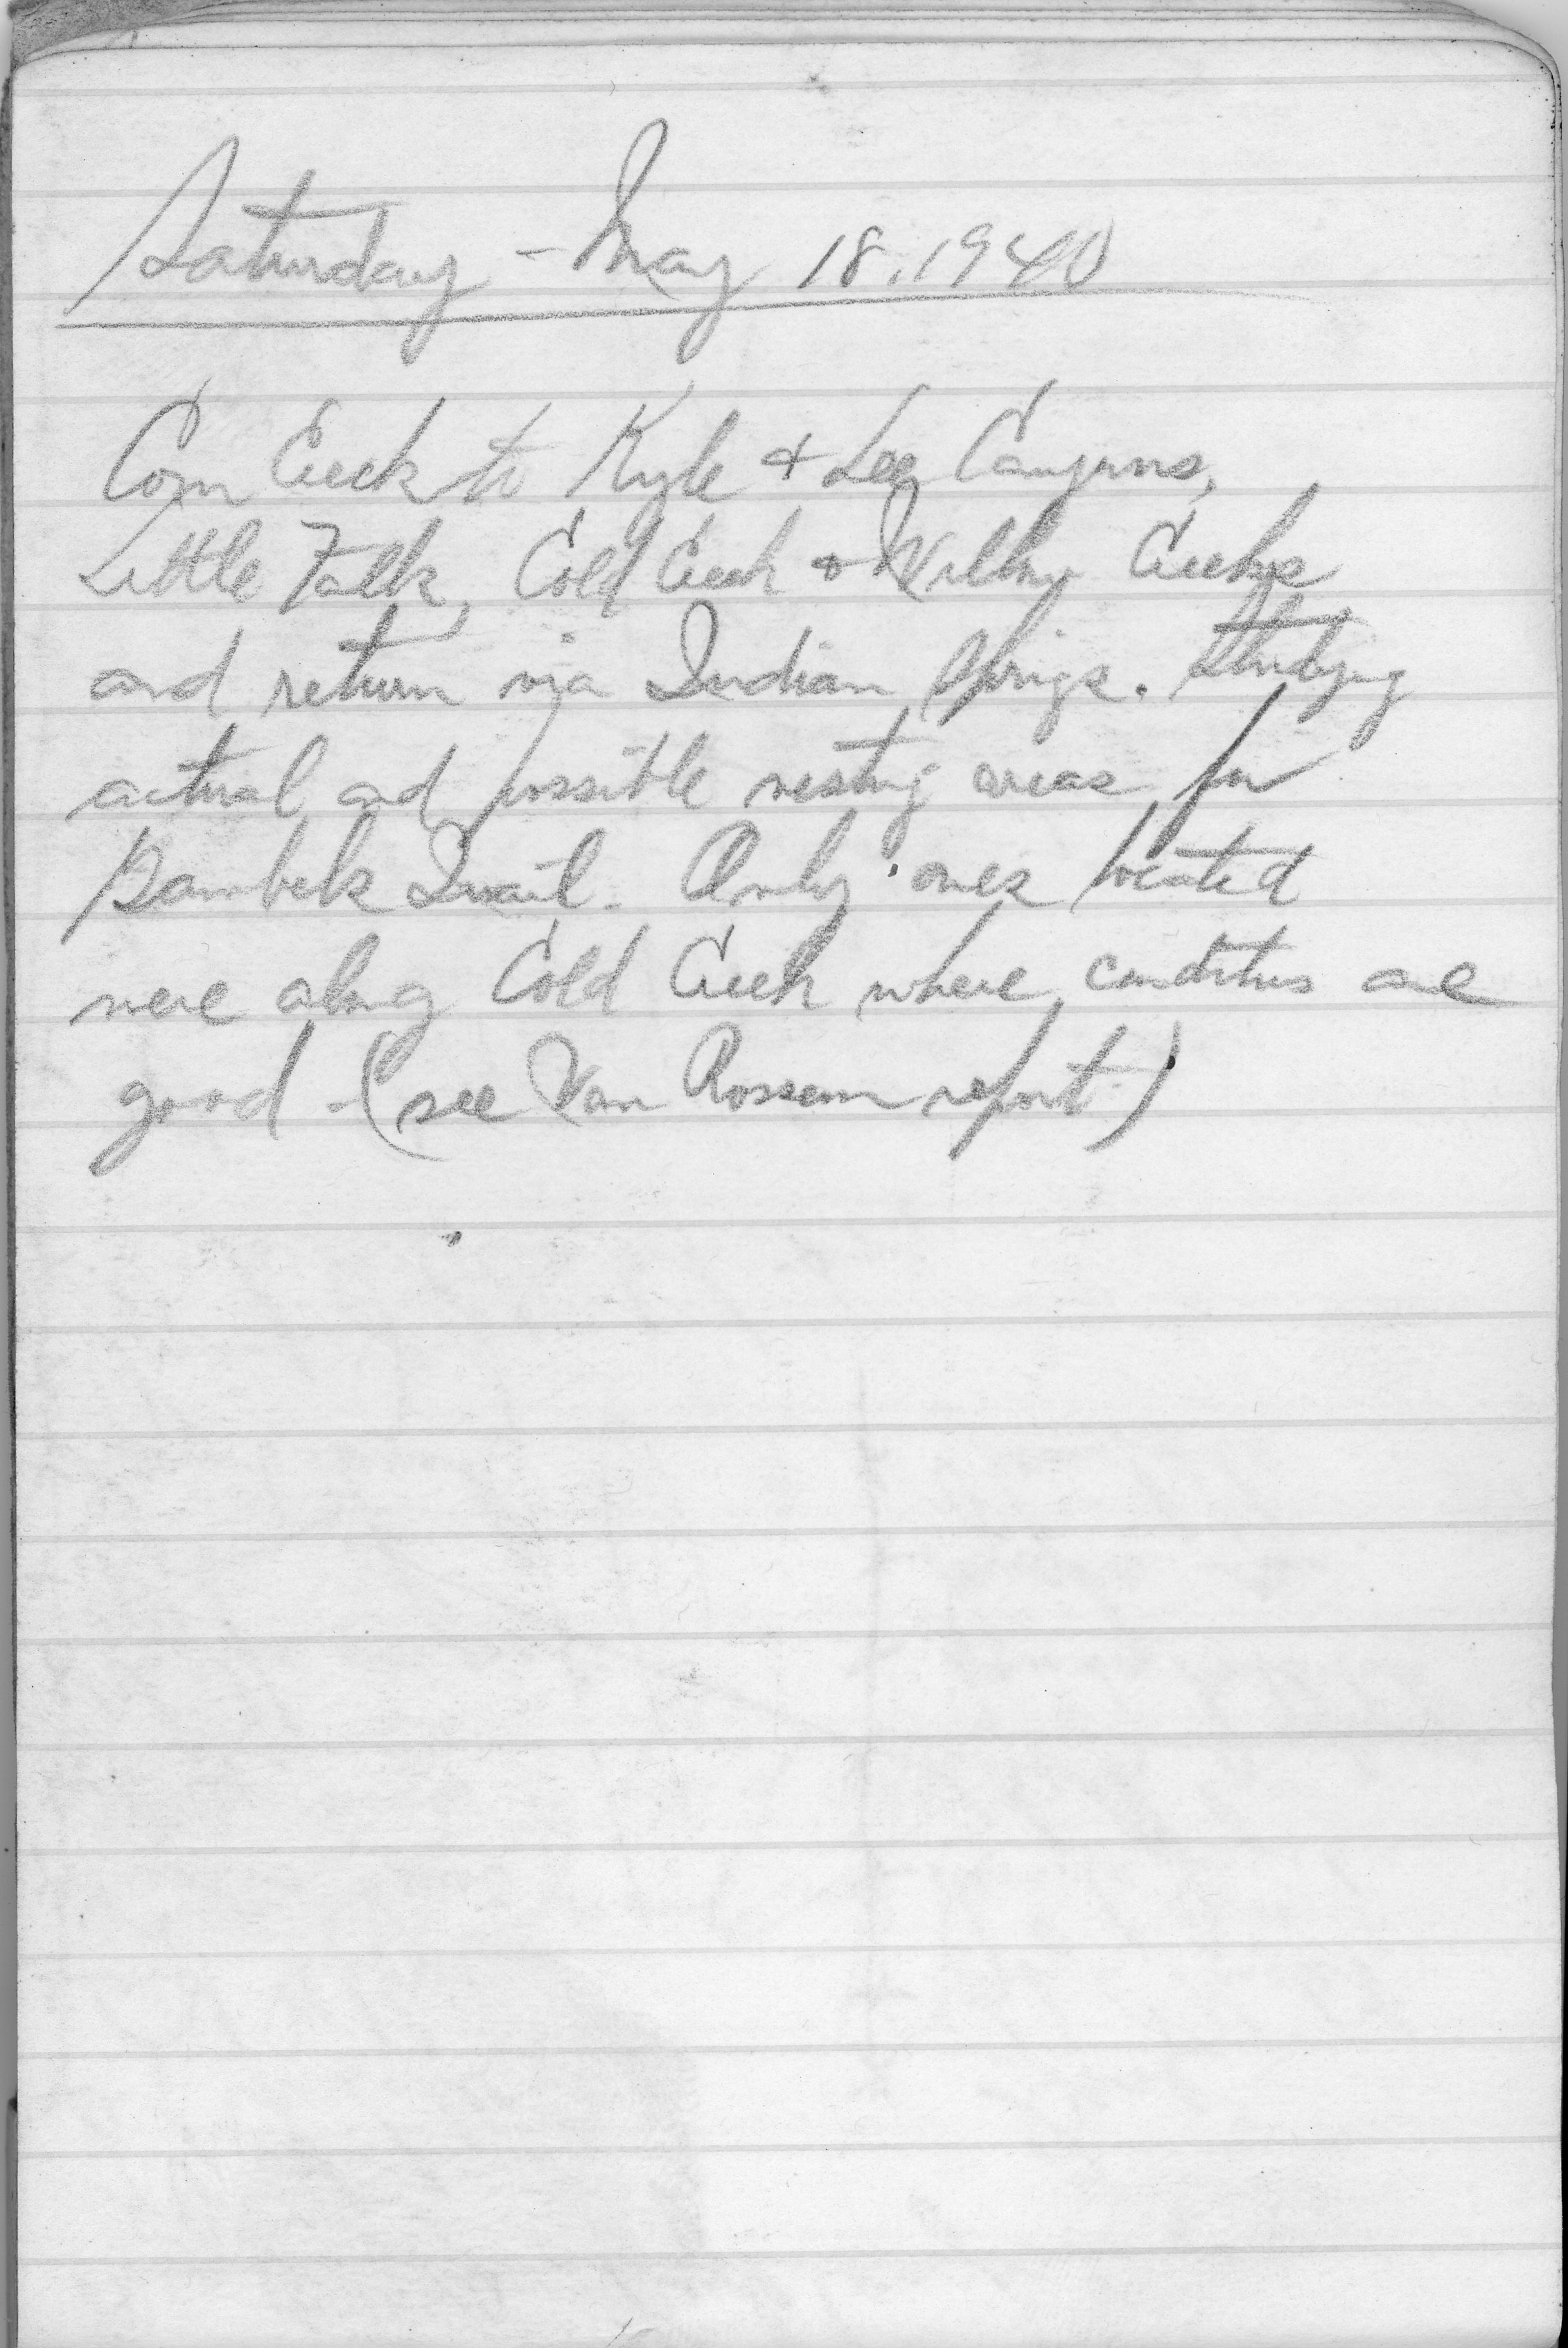 Saturday - May 18, 1940
Corn Creek to Kyle + Lee Canyons,
Little Falls, Cold Creek + Willow Creeks
and return via Indian Springs. Studying
actual and possible nesting areas for
Gambels Quail. Only ones located
were along Cold Creek where conditions are
good - (see Van Rossem report)